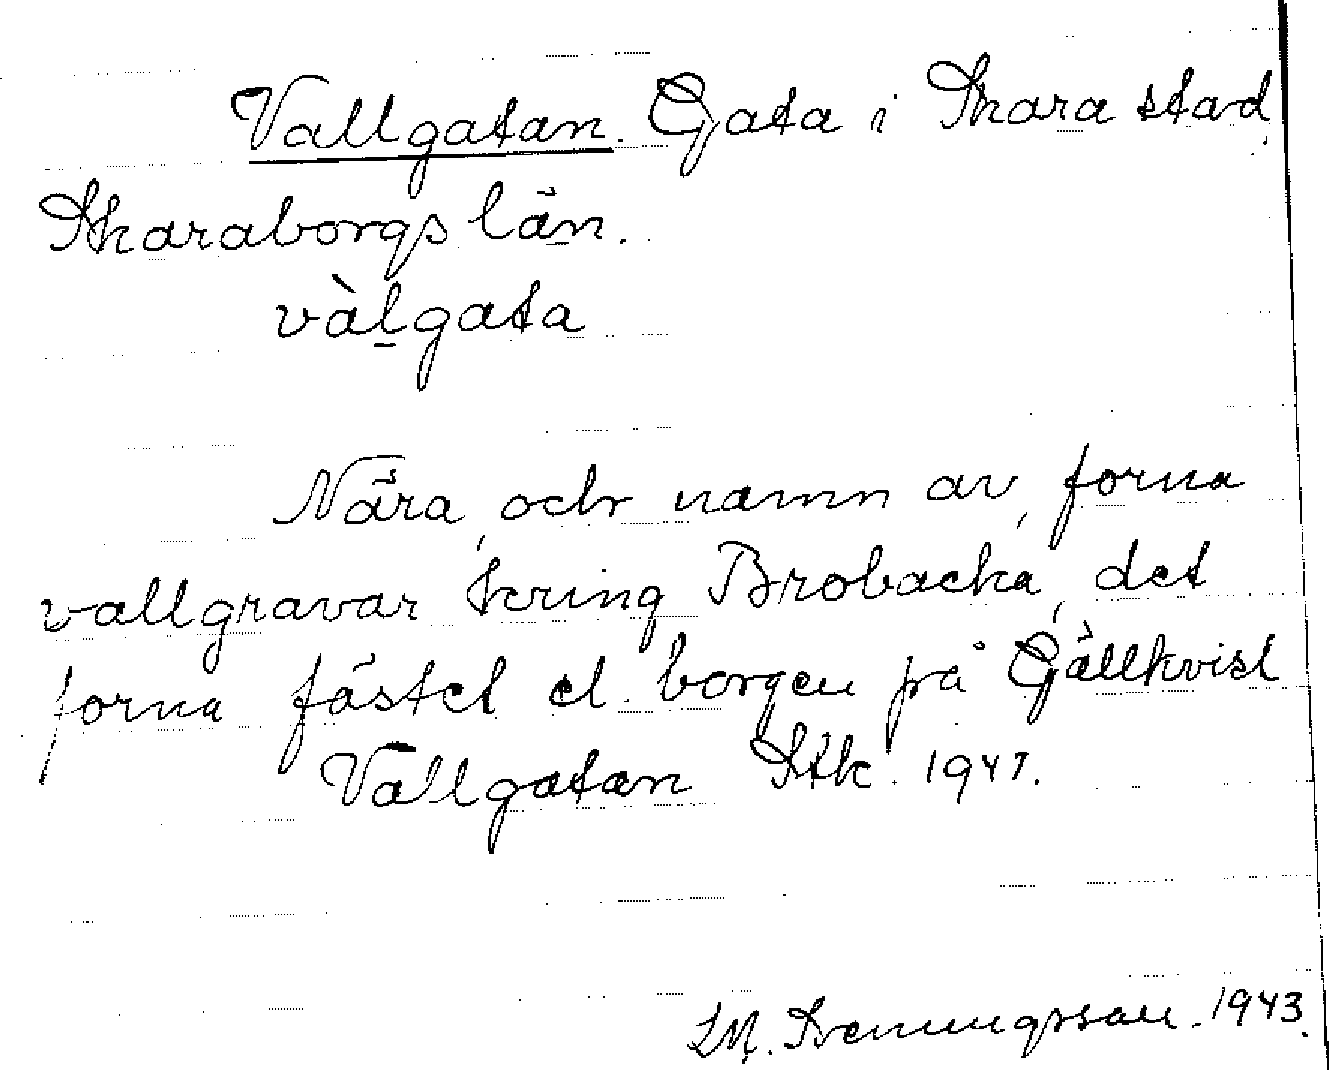 Vallgatan. Gata i Skara stad,
Skaraborgs län.
vàḻgata
Nära, och namn av, forna
vallgravar kring Brobacka, det
forna fästet el. borgen på Gällkvist
Vallgatan Stk. 1947.
1943.